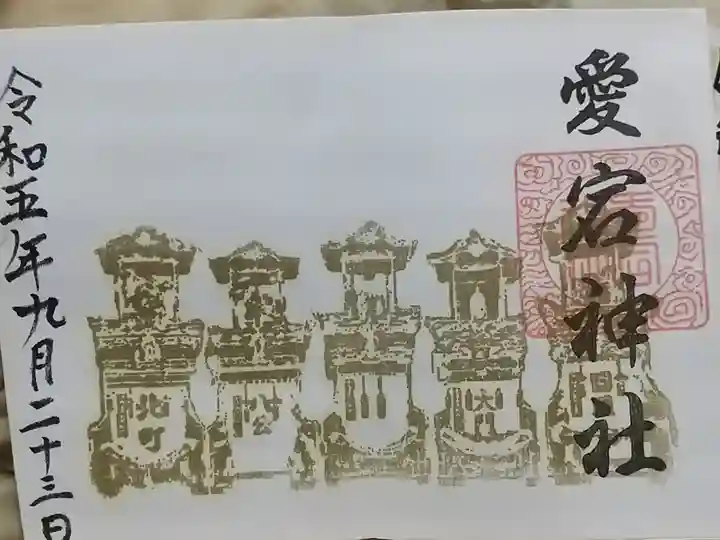 愛宕神社
北町
大町
令和五年九月二十三日